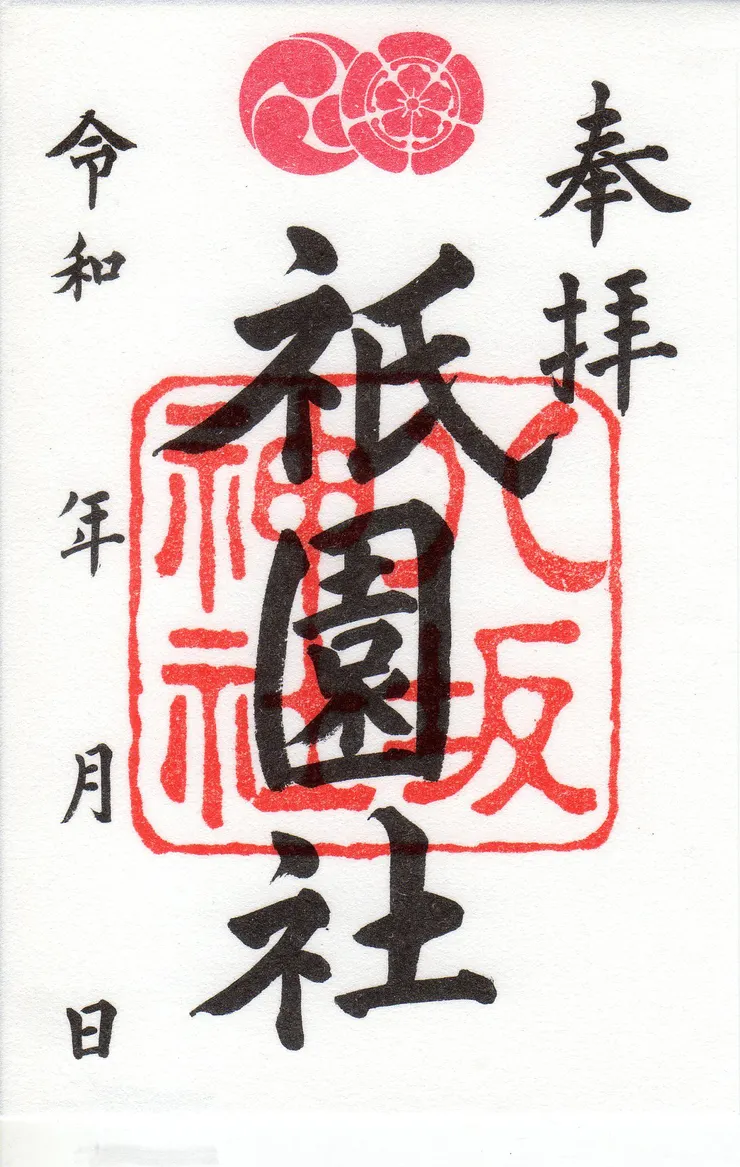 奉拝
祇園社
八坂
神社
令和 年 月 日